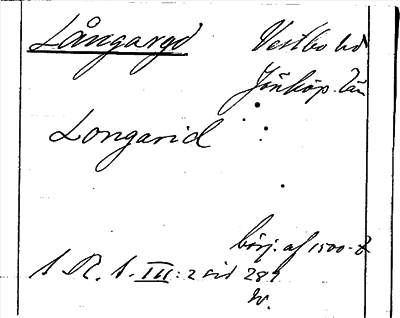 Långaryd Vestbo hd
Jönköp. län
Longarid
börj. af 1500-t.
S. R. S. III: 2 sid 289